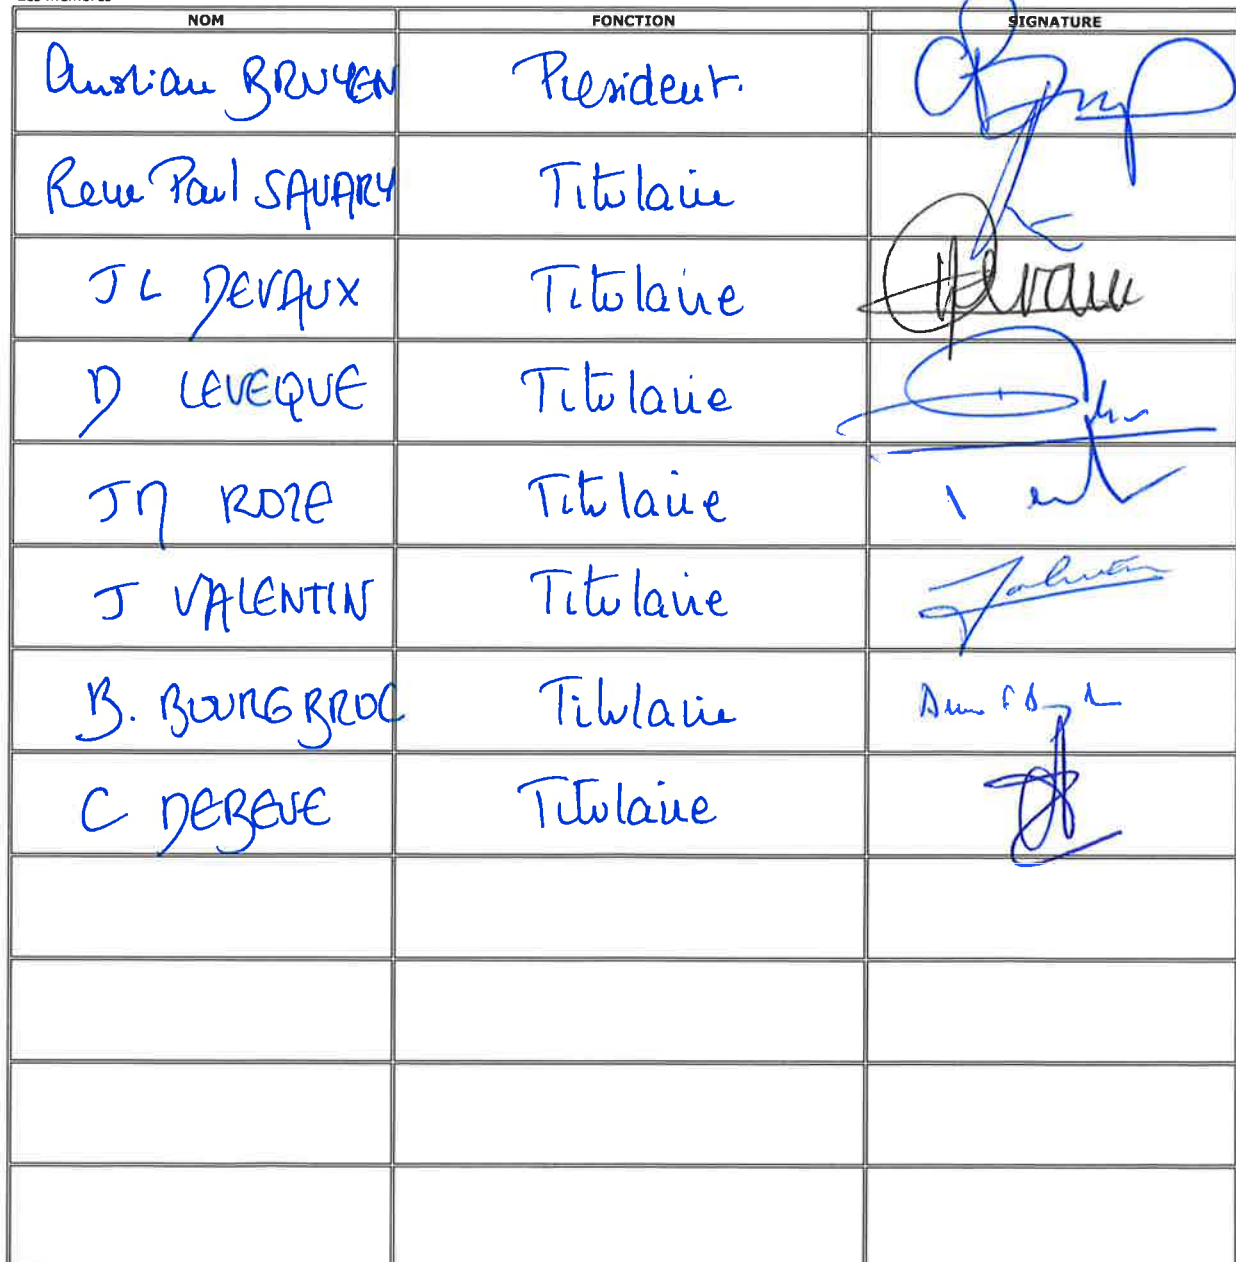 NOM FONCTION SIGNATURE
Christian BRUYEN President.
Rene Paul SAVARY Titulaire
JL DEVAUX Titulaire
D LEVEQUE Titulaire
JM ROZE Titulaire
J VALENTIN Titulaire
B. BOURG BROC Titulaire
C DEBEVE Titulaire